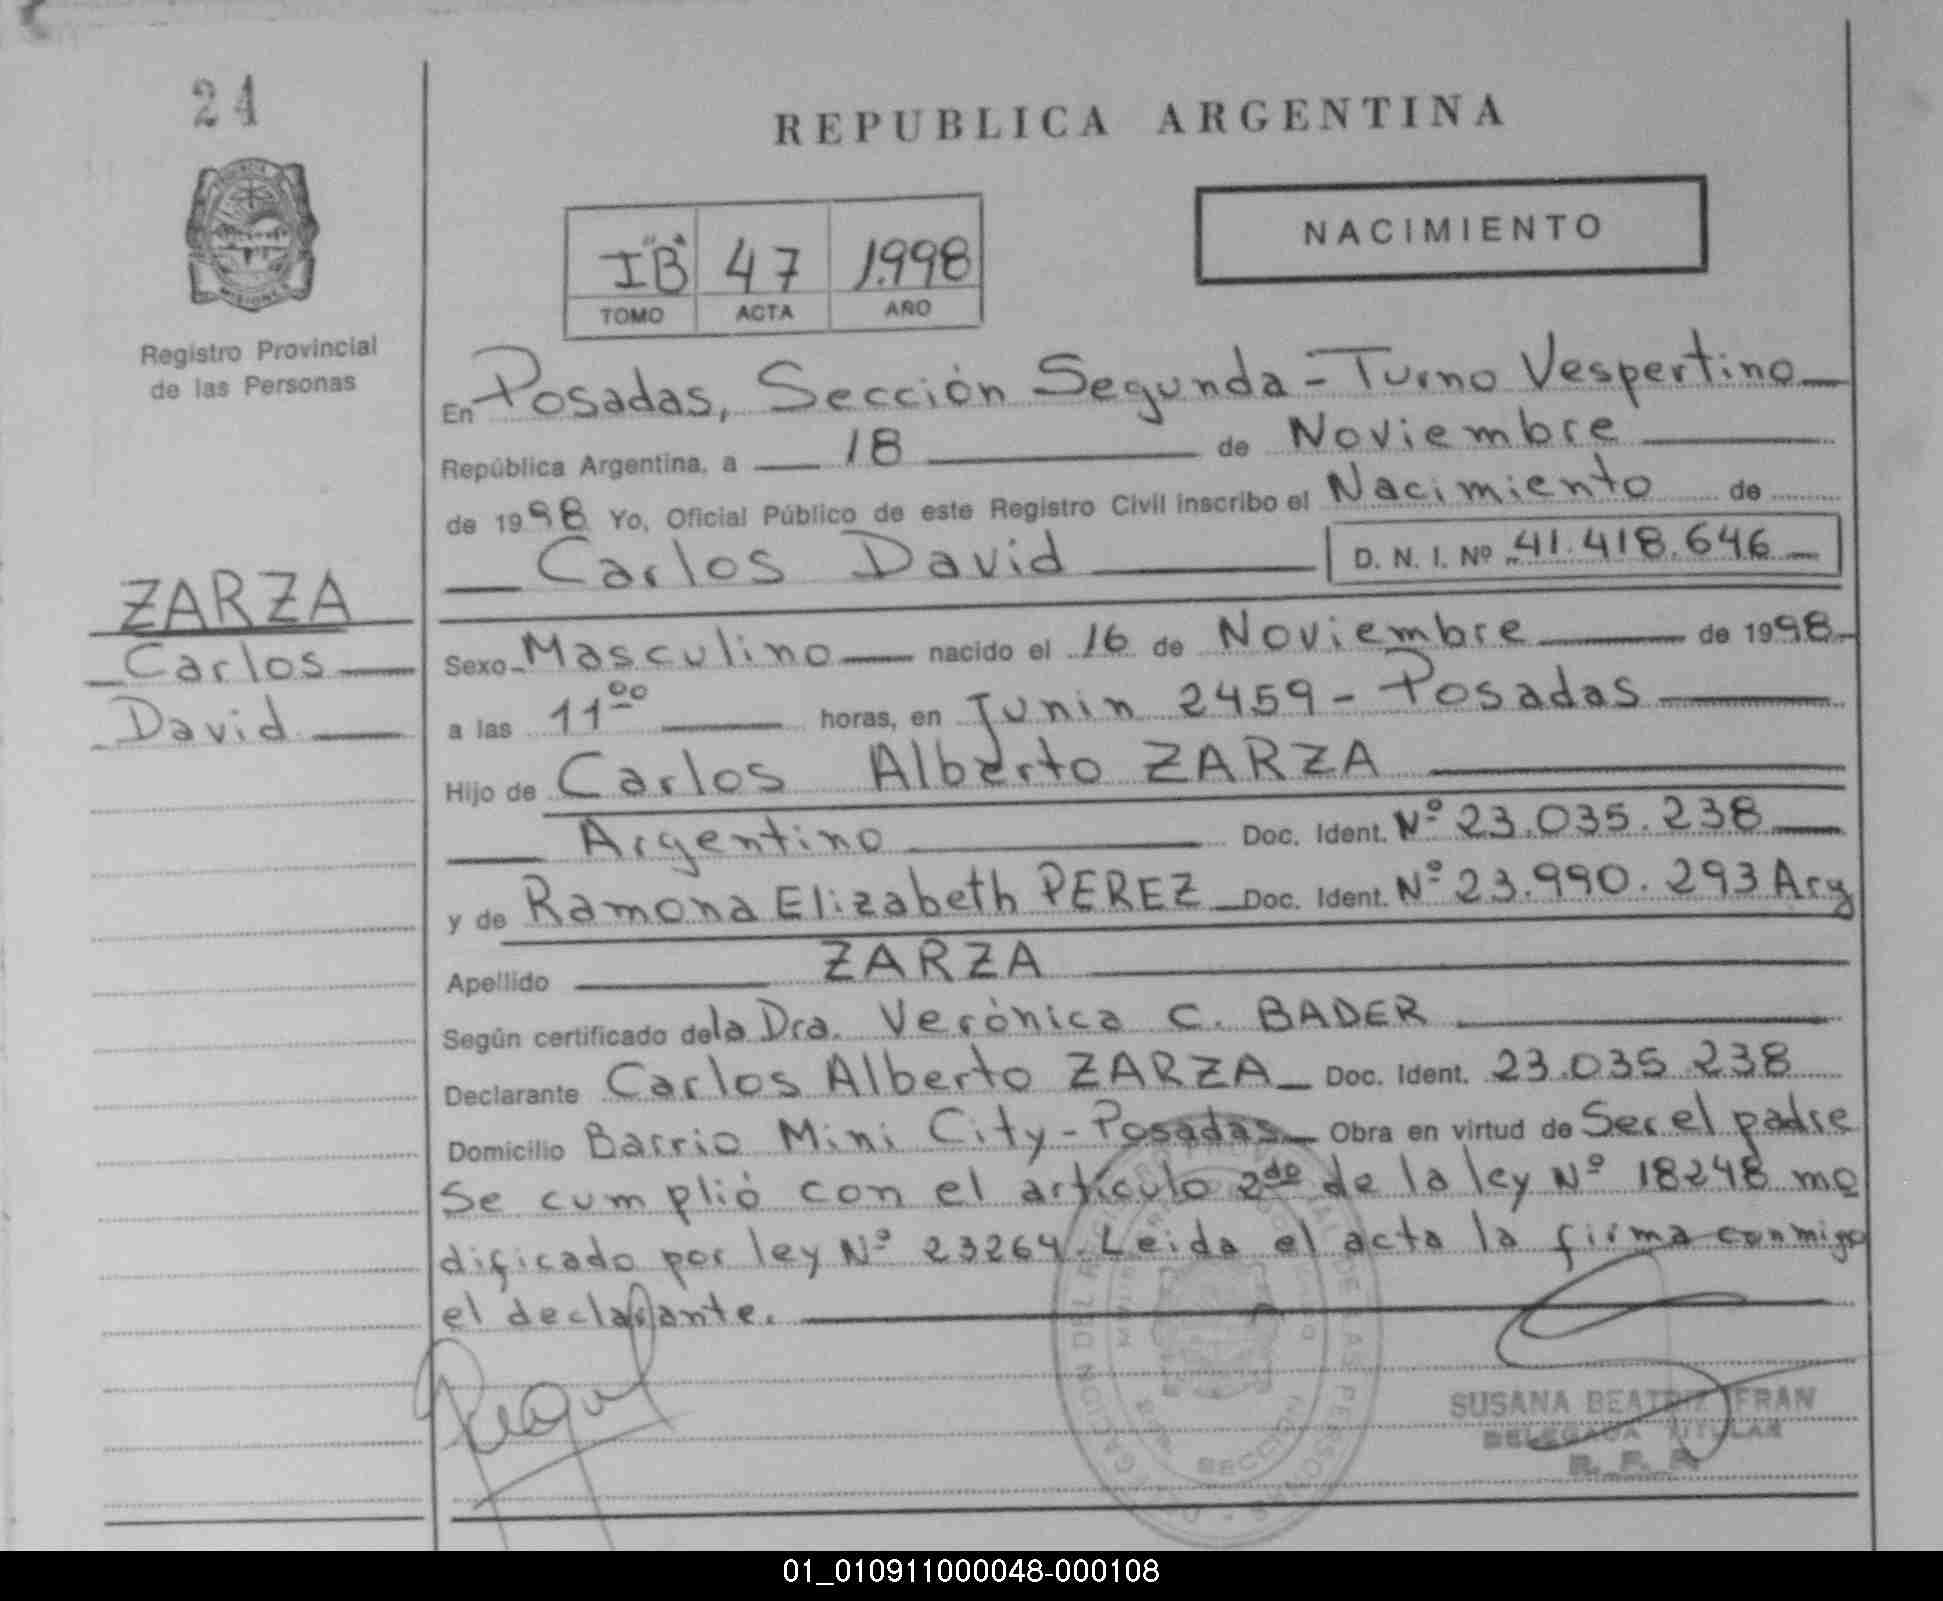 24
REPUBLICA ARGENTINA
NACIMIENTO
I"B" 47 1.998
TOMO ACTA AÑO
MISIONES
Registro Provincial
de las Personas
En Posadas, Sección Segunda - Turno Vespertino
República Argentina, a 18 de Noviembre
de 1998 Yo, Oficial Público de este Registro Civil inscribo el Nacimiento de
Carlos David D. N. I. Nº 41.418.646
ZARZA
Carlos
David
Sexo Masculino nacido el 16 de Noviembre de 1998
a las 11 00 horas, en Junin 2459 - Posadas
Hijo de Carlos Alberto ZARZA
Argentino Doc. Ident. Nº 23.035.238
y de Ramona Elizabeth PEREZ Doc. Ident. Nº 23.990.293 Arg
Apellido ZARZA
Según certificado de la Dra. Verónica C. BADER
Declarante Carlos Alberto ZARZA Doc. Ident. 23.035.238
Domicilio Barrio Mini City - Posadas Obra en virtud de Ser el padre
Se cumplió con el artículo 2do de la ley Nº 18248 mo
dificado por ley Nº 23264. Leida el acta la firma conmigo
el declarante.
SUSANA BEATRIZ FRAN
DELEGADA TITULAR
SECCION
01_010911000048-000108